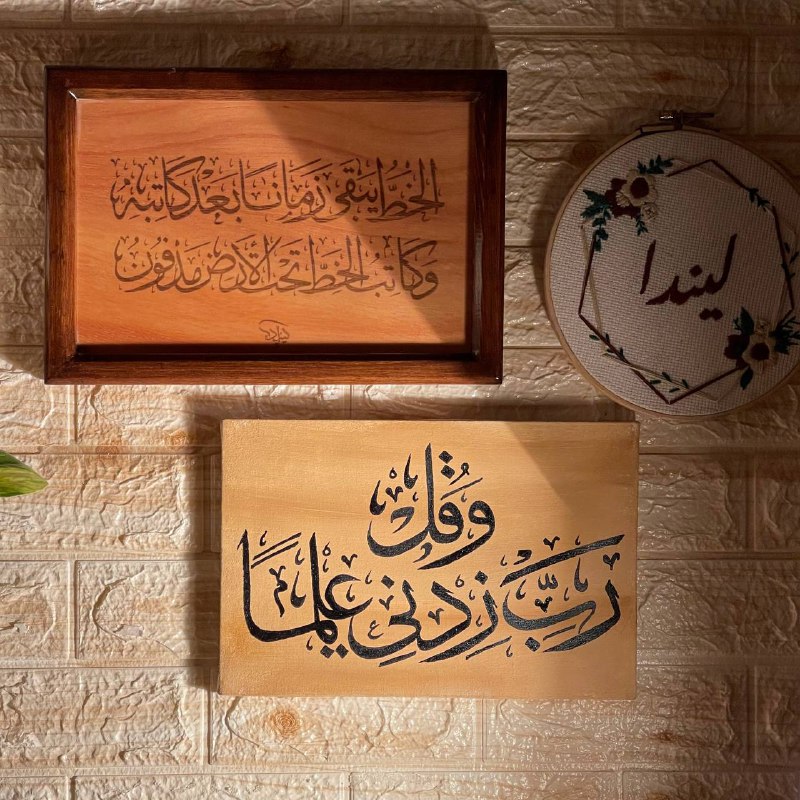 الخَطُّ يَبْقَى زَمَانًا بَعْدَ كَاتِبِهِ
وَكَاتِبُ الخَطِّ تَحْتَ الأَرْضِ مَدْفُونُ
ليندا
وَقُل
رَبِّ زِدْنِي عِلْمًا